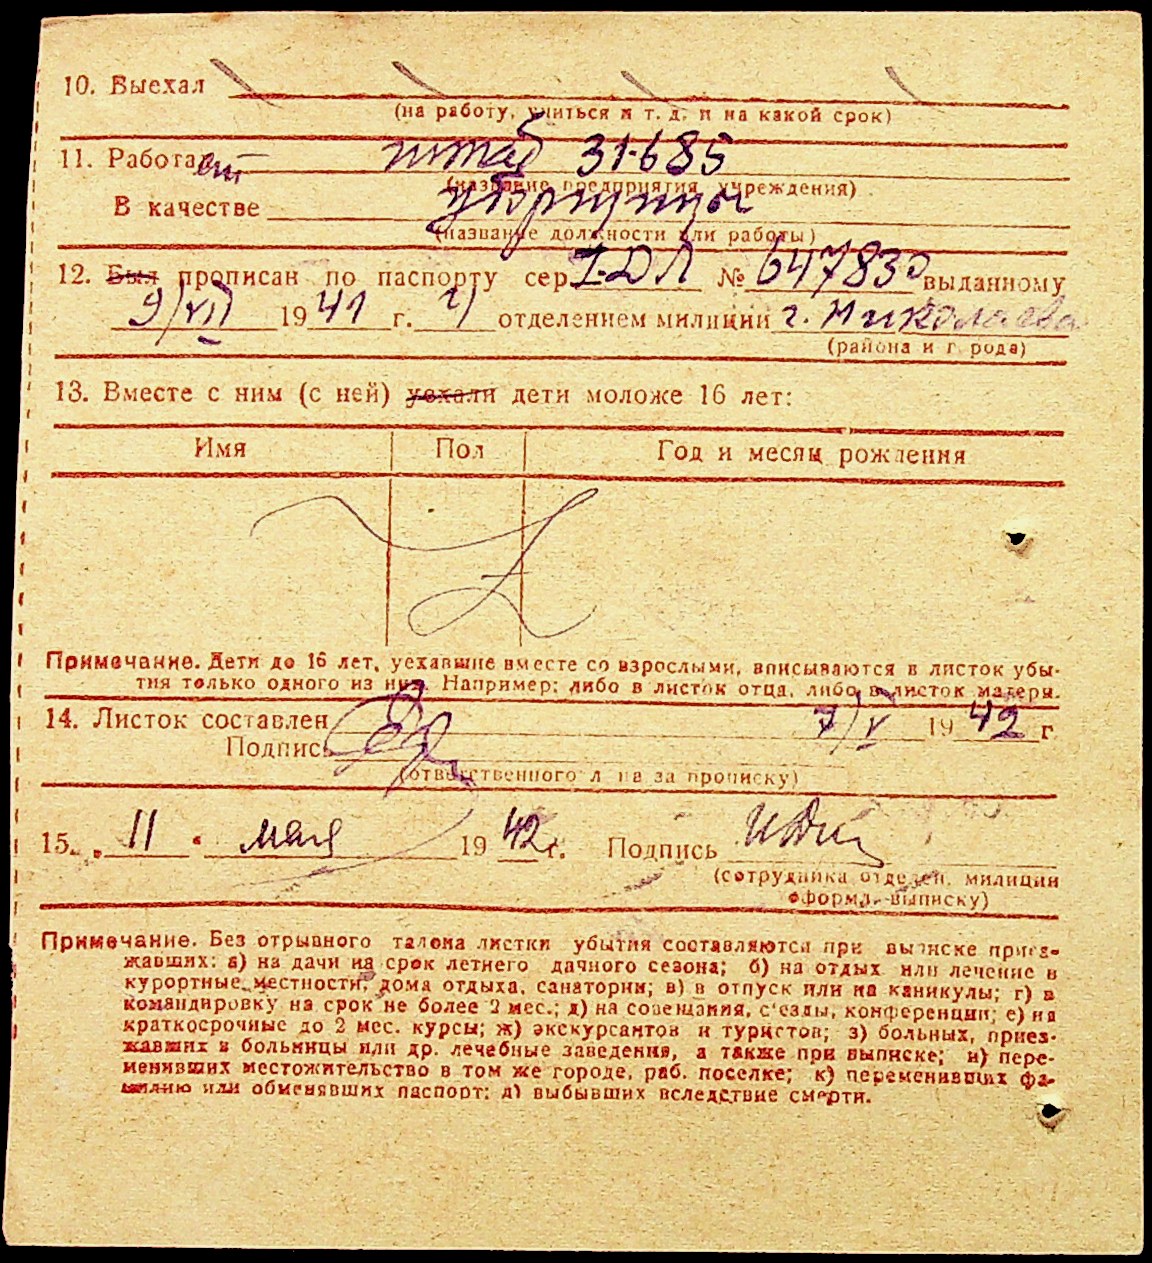 10. Выехал
(на работу, учиться и т. д. и на какой срок)
11. Работает штаб 31-685
(название предприятия, учреждения)
В качестве уборщицы
(название должности или работы)
12. Был прописан по паспорту сер. I-ДЛ № 647830 выданному
9/VII 1941 г. отделением милиции г. Николаева
(района и города)
13. Вместе с ним (с ней) уехали дети моложе 16 лет:
Имя Пол Год и месяц рождения
Примечание. Дети до 16 лет, уехавшие вместе со взрослыми, вписываются в листок убы-
тия только одного из них. Например: либо в листок отца, либо в листок матери.
14. Листок составлен 7/V 1942 г
Подпись
(ответственного лица за прописку)
15. „ 11 “ мая 1942 г. Подпись
(сотрудника отделен. милиции
оформл. выписку)
Примечание. Без отрывного талона листки убытия составляются при выписке приез-
жавших: а) на дачи на срок летнего дачного сезона; б) на отдых или лечение в
курортные местности, дома отдыха, санатории; в) в отпуск или на каникулы; г) в
командировку на срок не более 2 мес.; д) на совещания, с'езды, конференции; е) на
краткосрочные до 2 мес. курсы; ж) экскурсантов и туристов; з) больных, приез-
жавших в больницы или др. лечебные заведения, а также при выписке; и) пере-
менивших местожительство в том же городе, раб. поселке; к) переменивших фа-
милию или обменявших паспорт; л) выбывших вследствие смерти.